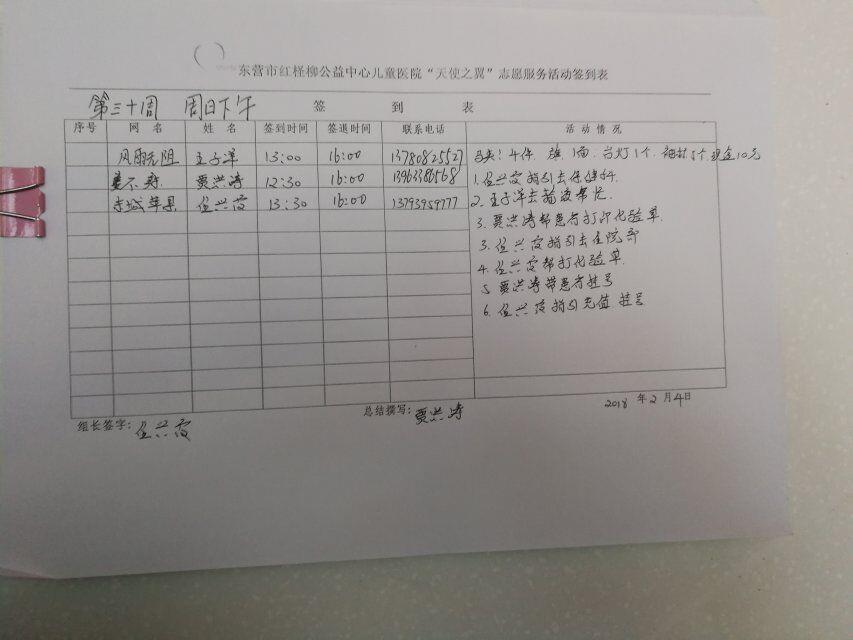 东营市红柽柳公益中心儿童医院“天使之翼”志愿服务活动签到表
第三十周 周日下午 签 到 表
序号 网 名 姓 名 签到时间 签退时间 联系电话 活 动 情 况
风雨无阻 王子洋 13:00 16:00 13780825527 马夹:4件. 旗1面. 台灯1个. 袖标5个 现金10元
不寿 贾洪涛 12:30 16:00 13963386568 1.伍兴霞指引去保健科.
赤城苹果 伍兴霞 13:30 16:00 13793959777 2.王子洋去输液帮忙.
3.贾洪涛帮患者打印化验单.
3.伍兴霞指引去住院部
4.伍兴霞帮打化验单.
5 贾洪涛带患者挂号
6.伍兴霞指引充值 挂号
组长签字:伍兴霞 总结撰写:贾洪涛 2018 年 2 月 4 日